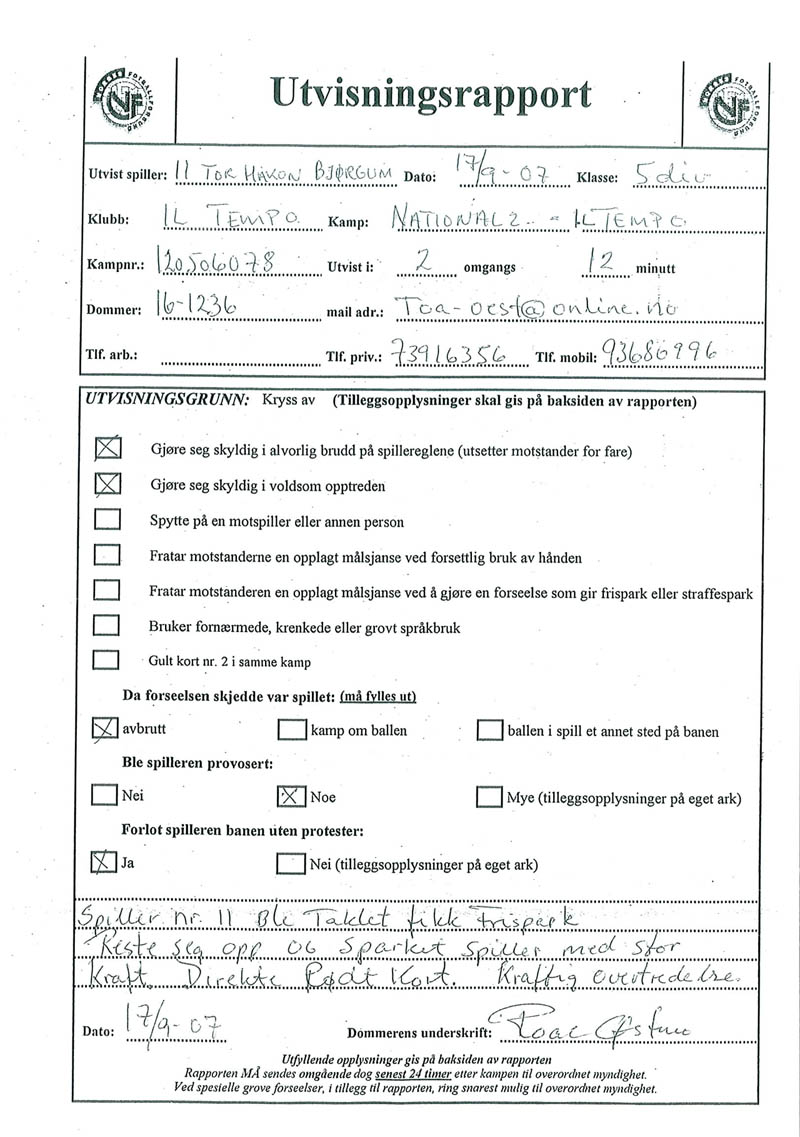 Utvisningsrapport
Utvist spiller: 11 TOR HÅKON BJØRGUM Dato: 17/9-07 Klasse: 5 div
Klubb: IL TEMPO. Kamp: NATIONAL 2 - IL TEMPO
Kampnr.: 120506078 Utvist i: 2 omgangs 12 minutt
Dommer: 16-1236 mail adr.: Toa-oest@online.no
Tlf. arb.: Tlf. priv.: 73916356 Tlf. mobil: 93680996
UTVISNINGSGRUNN: Kryss av (Tilleggsopplysninger skal gis på baksiden av rapporten)
Gjøre seg skyldig i alvorlig brudd på spillereglene (utsetter motstander for fare)
Gjøre seg skyldig i voldsom opptreden
Spytte på en motspiller eller annen person
Fratar motstanderne en opplagt målsjanse ved forsettlig bruk av hånden
Fratar motstanderen en opplagt målsjanse ved å gjøre en forseelse som gir frispark eller straffespark
Bruker fornærmede, krenkede eller grovt språkbruk
Gult kort nr. 2 i samme kamp
Da forseelsen skjedde var spillet: (må fylles ut)
avbrutt kamp om ballen ballen i spill et annet sted på banen
Ble spilleren provosert:
Nei Noe Mye (tilleggsopplysninger på eget ark)
Forlot spilleren banen uten protester:
Ja Nei (tilleggsopplysninger på eget ark)
Spiller nr. 11 Ble Taklet fikk frispark
Reste seg opp OG Sparket spiller med stor
Kraft. Direkte Rødt Kort. Kraftig overtredelse.
Dato: 17/9-07 Dommerens underskrift: Roar
Utfyllende opplysninger gis på baksiden av rapporten
Rapporten MÅ sendes omgående dog senest 24 timer etter kampen til overordnet myndighet.
Ved spesielle grove forseelser, i tillegg til rapporten, ring snarest mulig til overordnet myndighet.